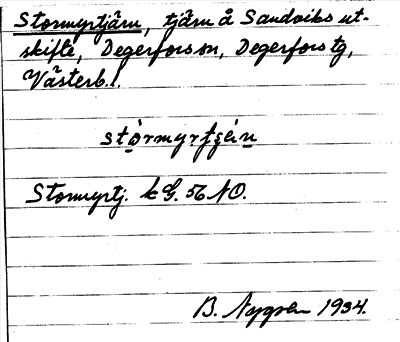 Stormyrtjärn, tjärn å Sandviks ut-
skifte, Degerfors sn, Degerfors tg,
Västerb. l.
Stormyrtj. k G. 56 NO.
B. Nygren 1934.